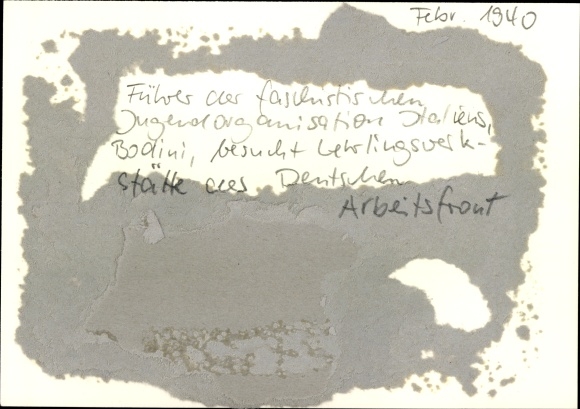 Febr. 1940
Führer der faschistischen
Jugendorganisation Italiens,
Bodini, besucht Lehrlingswerk-
stätte der Deutschen
Arbeitsfront